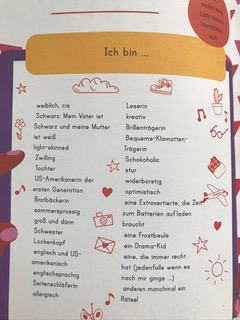 Liste deiner
Identitäten
Ich bin ...
weiblich, cis
Schwarz: Mein Vater ist
Schwarz und meine Mutter
ist weiß
light-skinned
Zwilling
Tochter
US-Amerikanerin der
ersten Generation
Brotbäckerin
sommersprossig
groß und dünn
Schwester
Lockenkopf
englisch und US-
amerikanisch
englischsprachig
Seitenschläferin
allergisch
Leserin
kreativ
Brillenträgerin
Bequeme-Klamotten-
Trägerin
Schokoholic
stur
widerborstig
optimistisch
eine Extrovertierte, die Zeit
zum Batterien aufladen
braucht
eine Frostbeule
ein Drama-Kid
eine, die immer recht
hat (jedenfalls wenn es
nach mir ginge ...)
anderen manchmal ein
Rätsel